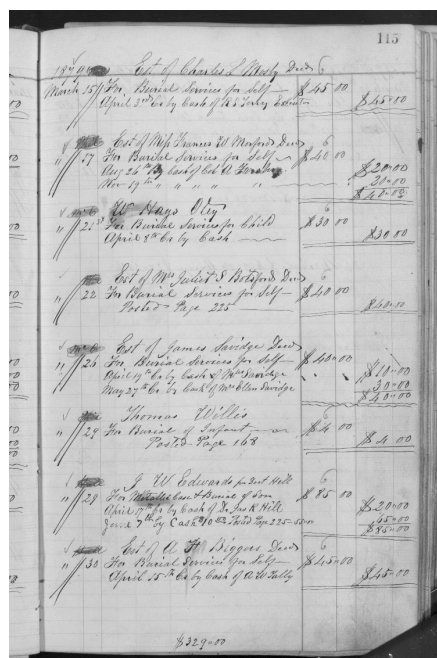 115
Est of Charles L Mosby Decd 6
March 15 For Burial Services for Self $45 00
April 2nd Cr by Cash of Exect $45.00
Est of Miss Frances W Decd 6
" 17 For Burial Services for Self $40 00
Aug 26th By Cash of Col A $20.00
Nov 19th " " " " " 20.00
$40.00
W Hays Otey 6
" 21st For Burial Services for Child $30 00
April 8th Cr by Cash $30.00
Est of Mrs Juliet S Botsford Decd 6
" 22 For Burial Services for Self $40 00
Posted Page 225 $40.00
Est of James Savidge Decd
" 26 For Burial Services for Self $40.00
April 19th Cr by Cash of Mrs Savidge $10.00
May 27th Cr by Cash of Mrs Ellen Savidge 30.00
$40.00
Thomas Willis 6
" 29 For Burial of Infant $4 00
Posted Page 168 $4 00
J W Edwards for Hill 6
" 29 For Metallic Case & Burial of Son $85 00
April 17th Cr by Cash of Jas R Hill $20.00
June 7th by Cash $10 Page 225 55.00 65.00
$85.00
Est of A Biggers Decd 6
" 30 For Burial Services for Self $45.00
April 15th Cr by Cash of A W Talley $45.00
$329.00